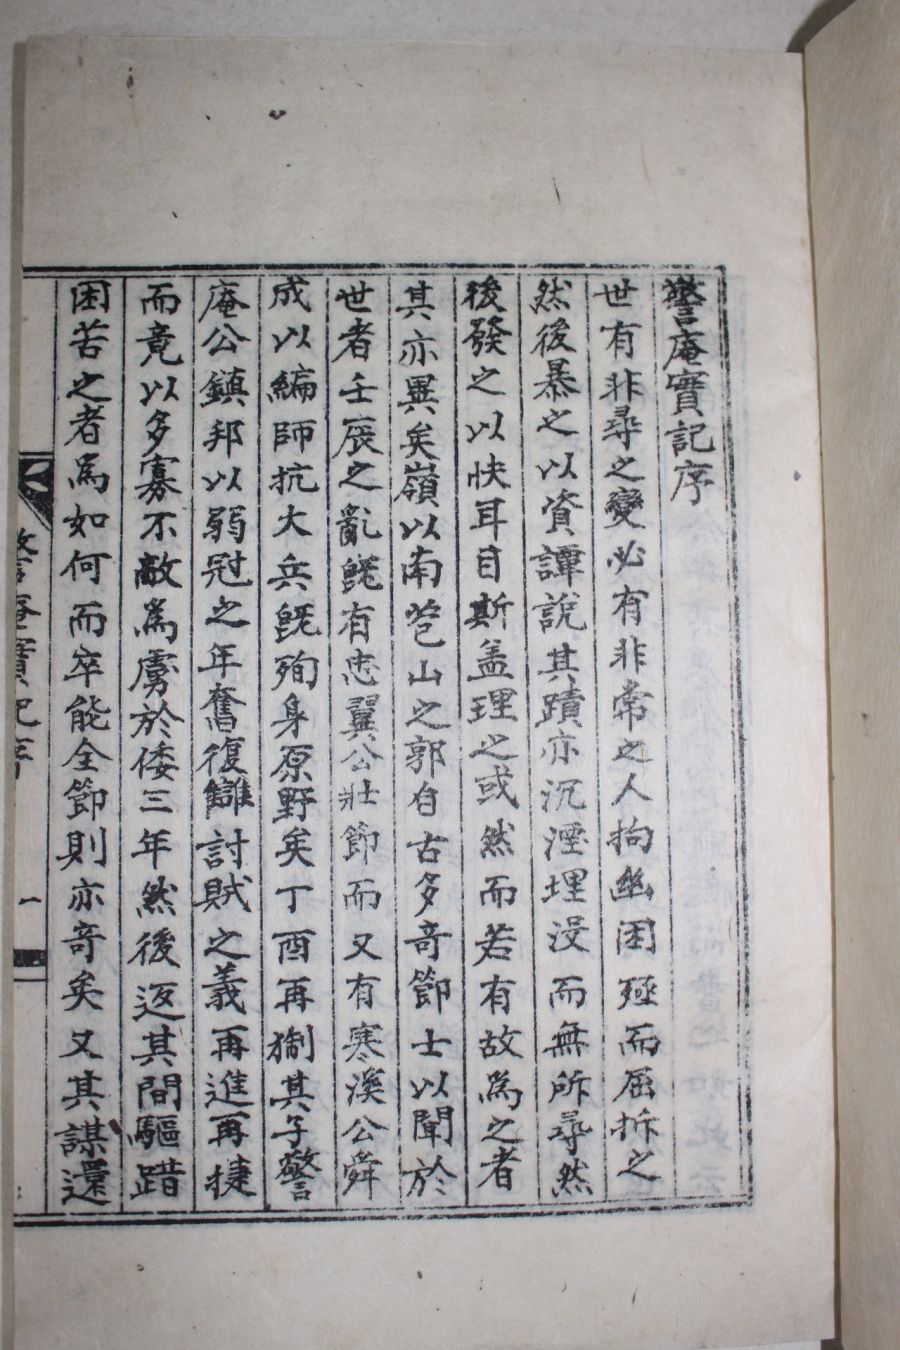 警庵實記序
世有非尋之變必有非常之人拘幽困殛而屈折之
然後暴之以資譚說其蹟亦沉湮埋沒而無所尋然
後發之以快耳目斯盖理之或然而若有故爲之者
其亦異矣嶺以南苞山之郭自古多奇節士以聞於
世者壬辰之亂旣有忠翼公壯節而又有寒溪公舜
成以編師抗大兵旣殉身原野矣丁酉再猘其子警
庵公鎮邦以弱冠之年奮復讎討賊之義再進再捷
而竟以多寡不敵爲虜於倭三年然後返其間驅踖
困苦之者爲如何而卒能全節則亦奇矣又其謀還
警庵實記序
一